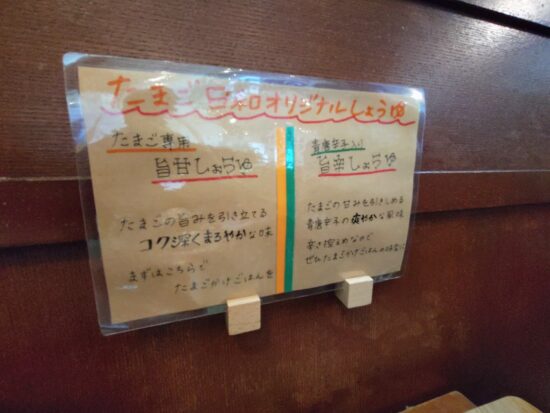 たまご日和オリジナルしょうゆ
たまご専用
旨甘しょうゆ
たまごの旨みを引き立てる
コク深くまろやかな味
まずはこちらで
たまごかけごはんを
青唐辛子入り
旨辛しょうゆ
たまごの甘みを引きしめる
青唐辛子の爽やかな風味
辛さ控えめなので
ぜひたまごかけごはんの